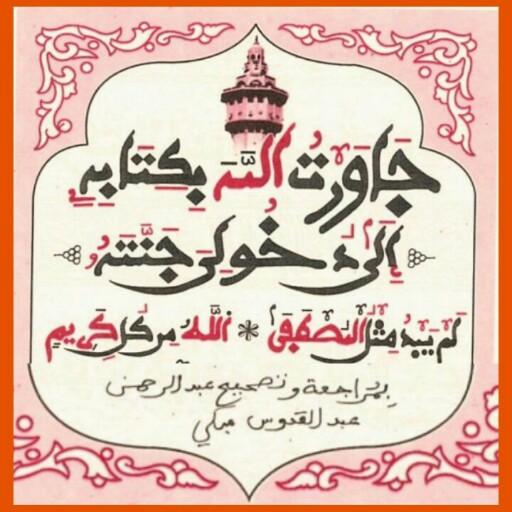 جَاوَرْتُ اللَّهَ بِكِتَابِهِ
إِلَى دُخُولِي جَنَّتَهُ
لَمْ يَبْدُ مِثْلُ الْمُصْطَفَى * اللَّهُ مِن كُلِّ كَرِيمٍ
بمراجعة وتصحيح عبد الرحمن
عبد القدوس مبكي